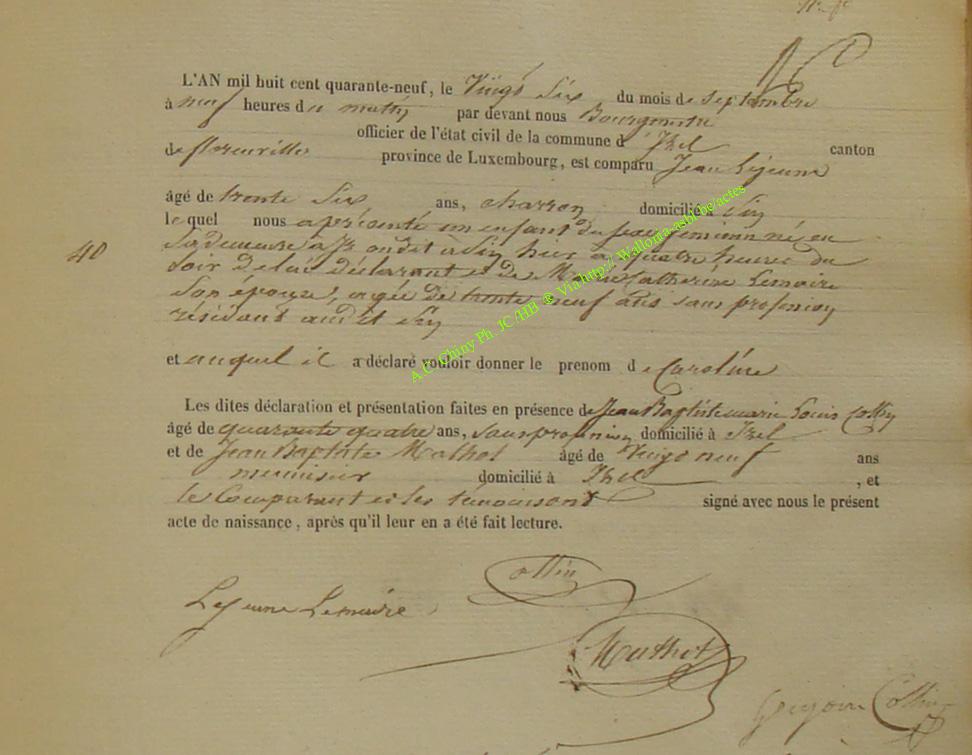 L'AN mil huit cent quarante-neuf, le Vingt Six du mois de Septembre
à neuf heures du matin par devant nous Bourgmestre
officier de l'état civil de la commune d'Izel canton
de florenville province de Luxembourg, est comparu Jean Lejeune
âgé de trente Six ans, charron domicilié à Pin
le quel nous a présenté un enfant du sexe féminin né en
Sa demeure à audit à Pin hier à quatre heures du
40
soir de lui déclarant et de Marie Catherine Lemaire
son épouse, agée de trente neuf ans sans profession
résidant audit Pin
et auquel il a déclaré vouloir donner le prenom de Caroline
Les dites déclaration et présentation faites en présence de Jean Baptiste marie Louis Collin
âgé de quarante quatre ans, sans profession domicilié à Izel
et de Jean Baptiste Mathot âgé de Vingt neuf ans
menuisier domicilié à Izel , et
le Comparant et les témoins ont signé avec nous le présent
acte de naissance, après qu'il leur en a été fait lecture.
Collin
Lejeune Lemaire
Mathot
Grégoire Collin
A.C. Chiny Ph. JC/HB ® Via http:// Wallonia-asbl.be/actes